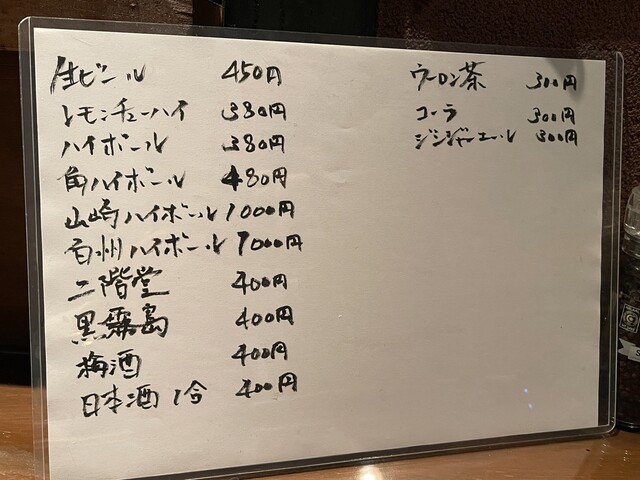 生ビール 450円
レモンチューハイ 380円
ハイボール 380円
角ハイボール 480円
山崎ハイボール 1000円
白州ハイボール 1000円
二階堂 400円
黒霧島 400円
梅酒 400円
日本酒 1合 400円
ウーロン茶 300円
コーラ 300円
ジンジャーエール 300円